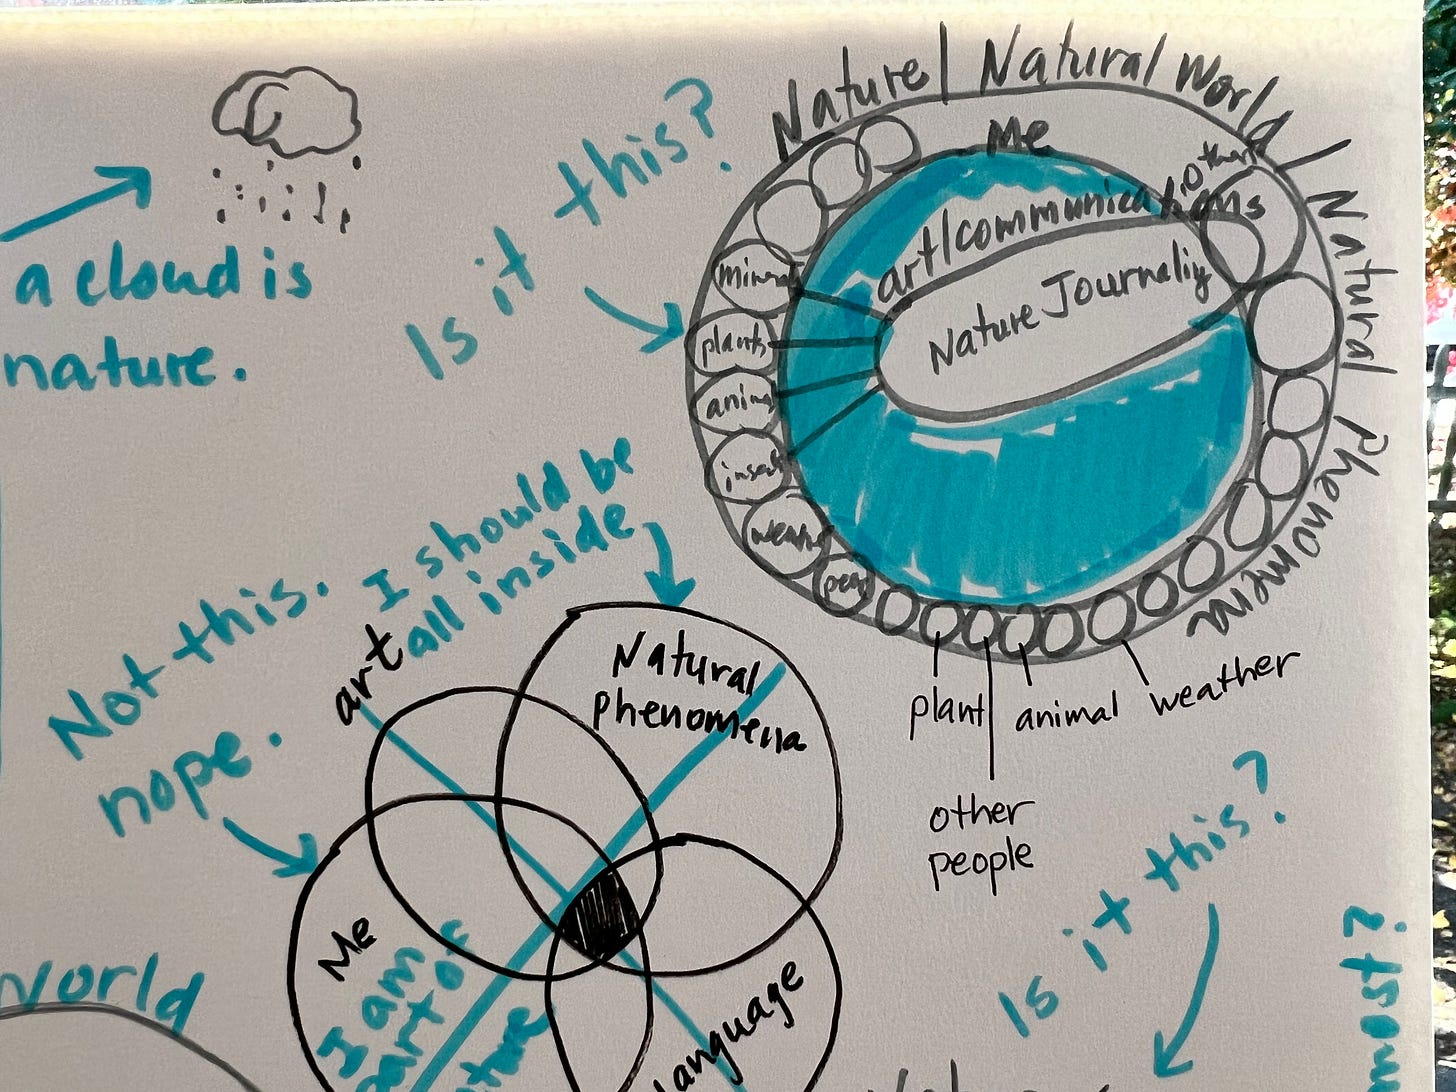 a cloud is
nature.
Is it this?
Nature/ Natural World / Natural Phenomena
Me
other
art/communications
Nature Journaling
plants
weather
plant
animal
weather
other
people
Not this. I should be
all inside
nope.
art
Natural
phenomena
Me
I am
part of
Language
World
Is it this?